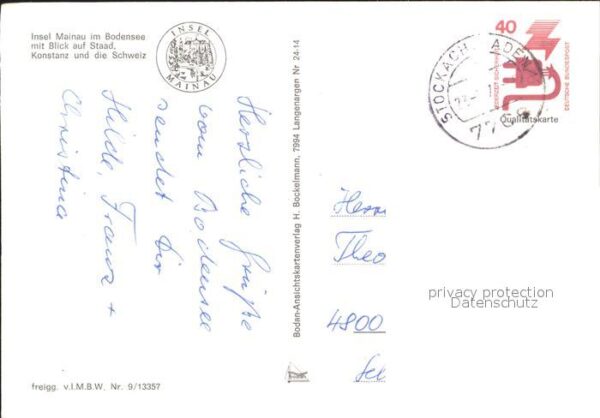 Insel Mainau im Bodensee
mit Blick auf Staad,
Konstanz und die Schweiz
INSEL
MAINAU
Herzliche Grüße
vom Bodensee
sendet Dir
Hilde, Franz +
Christina
freigg. v.I.M.B.W. Nr. 9/13357
Bodan-Ansichtskartenverlag H. Bockelmann, 7994 Langenargen Nr 24-14
40
JEDERZEIT SICHERHEIT
DEUTSCHE BUNDESPOST
Qualitätskarte
STOCKACH, BADEN
7768
Herrn
Theo
4800
privacy protection
Datenschutz